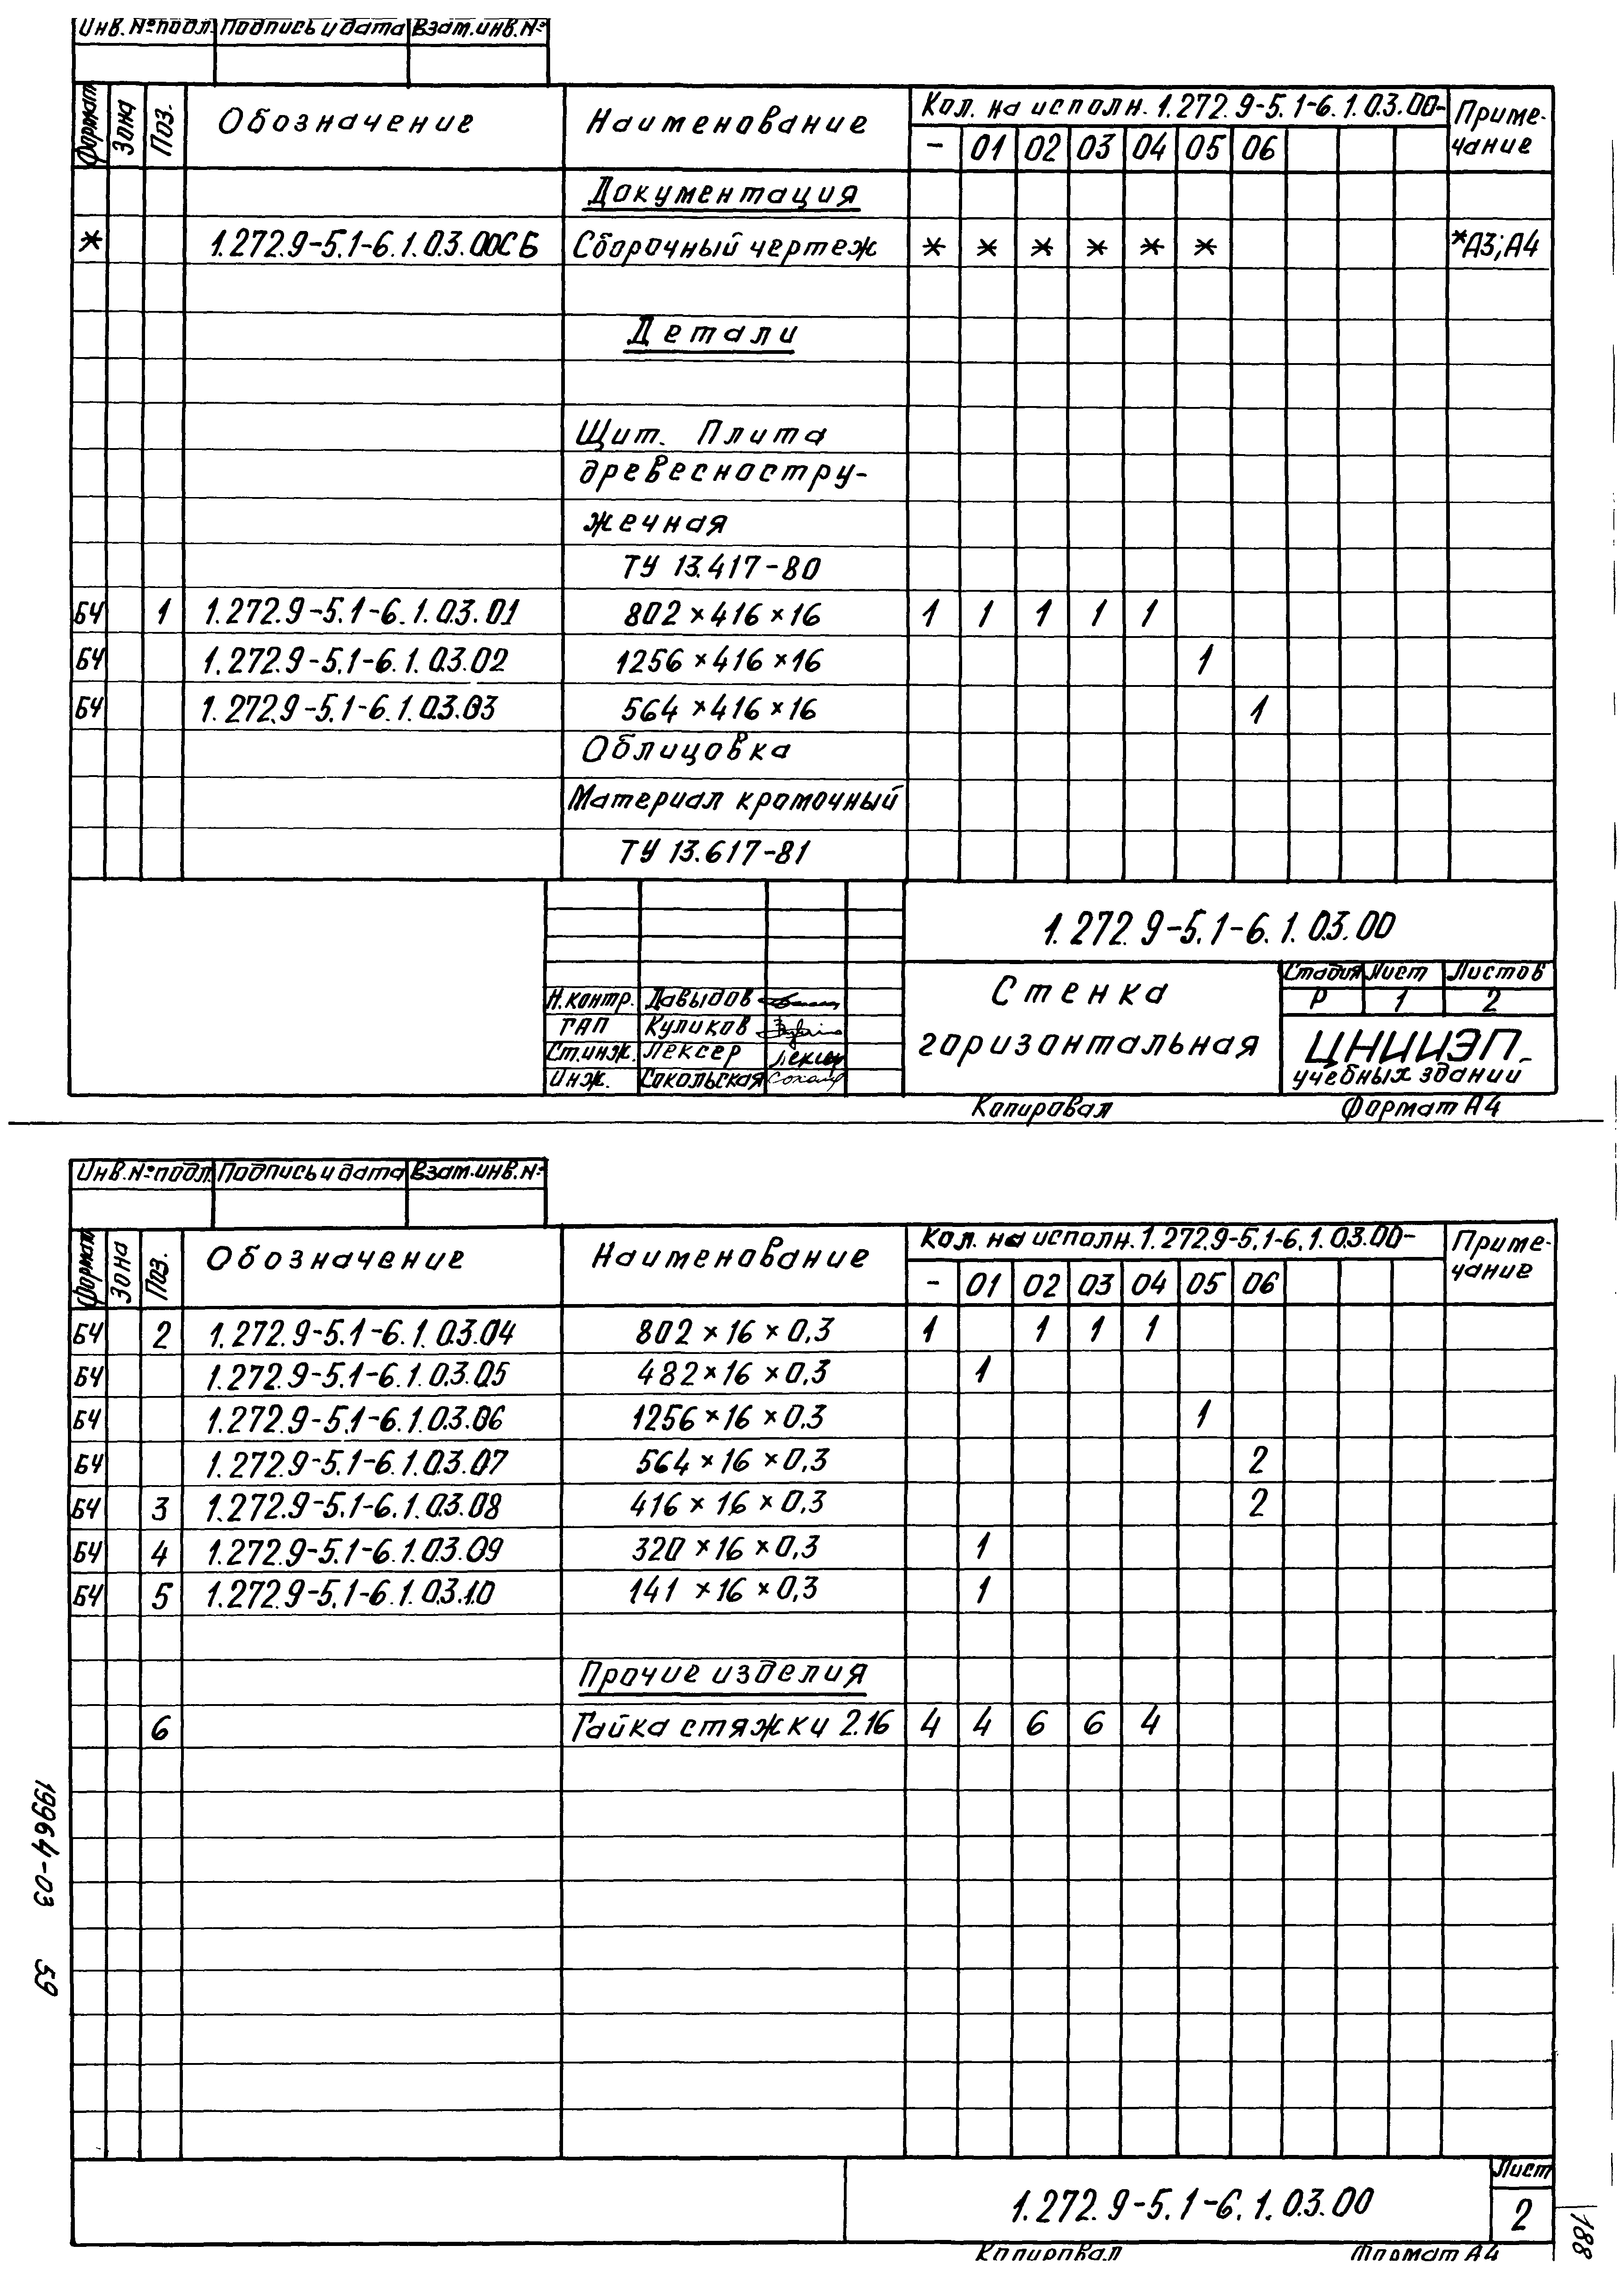 Инв. № подл. Подпись и дата Взам. инв. №
Формат Зона Поз. Обозначение Наименование Кол. на исполн. 1.272.9-5.1-6.1.03.00- Приме-
чание
- 01 02 03 04 05 06
Документация
* 1.272.9-5.1-6.1.03.00СБ Сборочный чертеж * * * * * * *А3; А4
Детали
Щит. Плита
древесностру-
жечная
ТУ 13.417-80
БЧ 1 1.272.9-5.1-6.1.03.01 802×416×16 1 1 1 1 1
БЧ 1.272.9-5.1-6.1.03.02 1256×416×16 1
БЧ 1.272.9-5.1-6.1.03.03 564×416×16 1
Облицовка
Материал кромочный
ТУ 13.617-81
1.272.9-5.1-6.1.03.00
Стенка
горизонтальная
Стадия Лист Листов
Р 1 2
Н.контр. Давыдов
ГАП Куликов
Ст.инж. Лексер Лексер
Инж. Сокольская
ЦНИИЭП
учебных зданий
Копировал Формат А4
Инв. № подл. Подпись и дата Взам. инв. №
Формат Зона Поз. Обозначение Наименование Кол. на исполн. 1.272.9-5.1-6.1.03.00- Приме-
чание
- 01 02 03 04 05 06
БЧ 2 1.272.9-5.1-6.1.03.04 802×16×0,3 1 1 1 1
БЧ 1.272.9-5.1-6.1.03.05 482×16×0,3 1
БЧ 1.272.9-5.1-6.1.03.06 1256×16×0,3 1
БЧ 1.272.9-5.1-6.1.03.07 564×16×0,3 2
БЧ 3 1.272.9-5.1-6.1.03.08 416×16×0,3 2
БЧ 4 1.272.9-5.1-6.1.03.09 320×16×0,3 1
БЧ 5 1.272.9-5.1-6.1.03.10 141×16×0,3 1
Прочие изделия
6 Гайка стяжки 2.16 4 4 6 6 4
19964-03 59
1.272.9-5.1-6.1.03.00
Лист
2
Копировал Формат А4
188